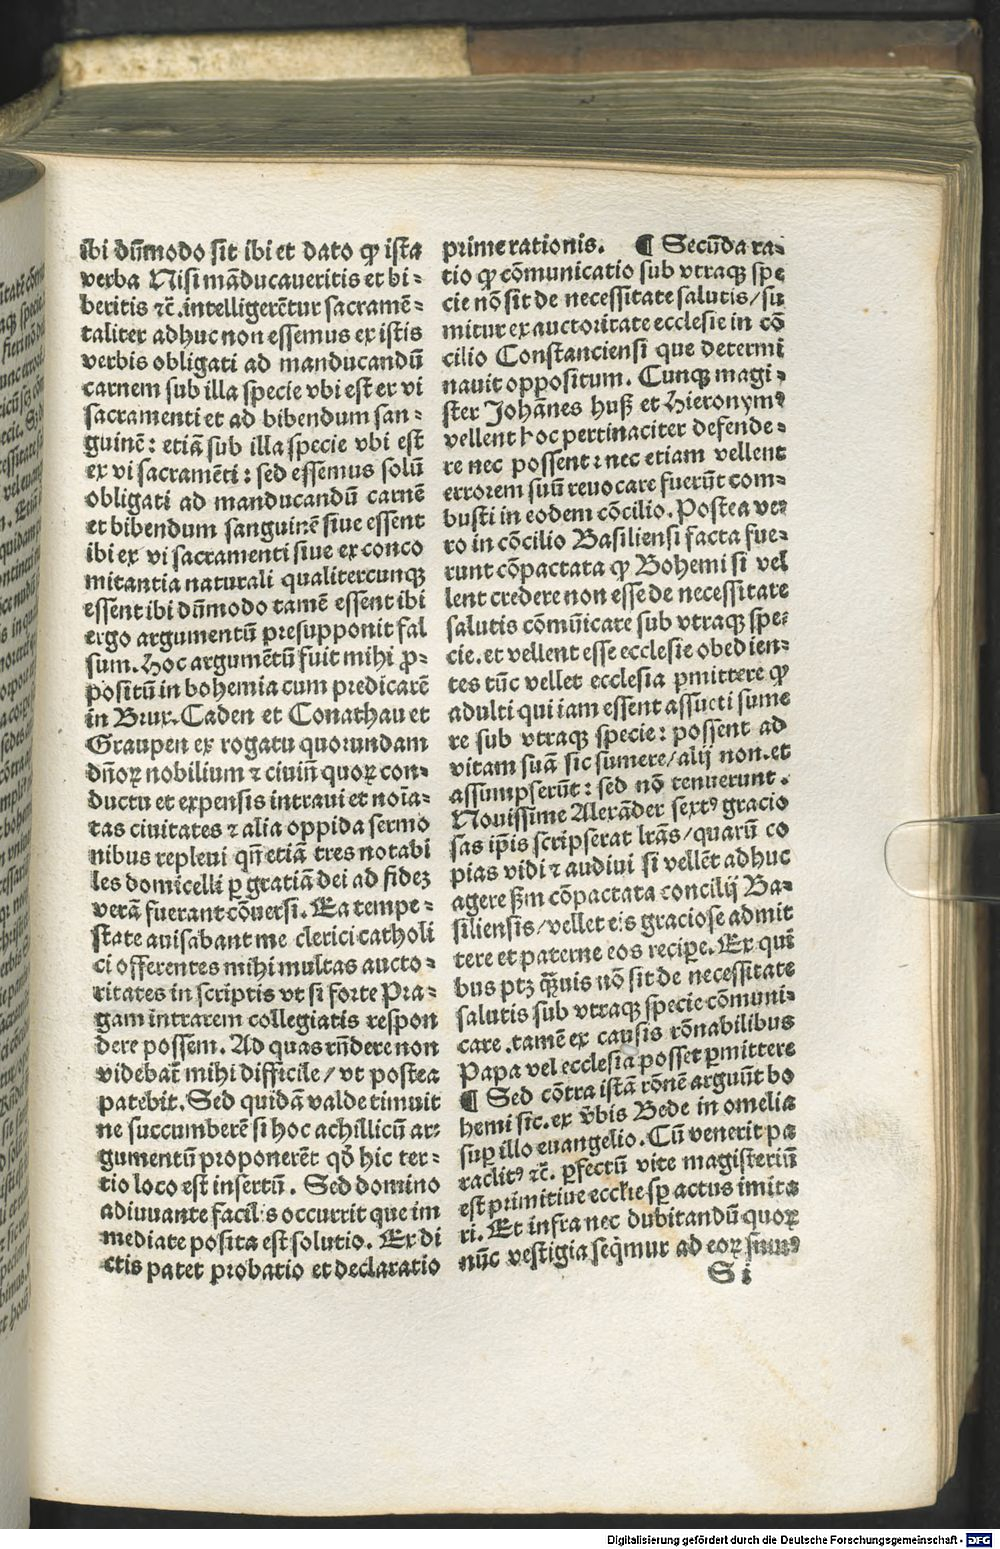 ibi dūmodo sit ibi et dato ꝙ ista
verba Nisi māducaueritis et bi⸗
beritis ⁊c̄. intelligerētur sacramē⸗
taliter adhuc non essemus ex istis
verbis obligati ad manducandū
carnem sub illa specie vbi est ex vi
sacramenti et ad bibendum san⸗
guinē: etiā sub illa specie vbi est
ex vi sacramēti: sed essemus solū
obligati ad manducandū carnē
et bibendum sanguinē siue essent
ibi ex vi sacramenti siue ex conco
mitantia naturali qualitercunqꝫ
essent ibi dūmodo tamē essent ibi
ergo argumentū presupponit fal
sum. Hoc argumētū fuit mihi ꝓ⸗
positū in bohemia cum predicarē
in Brux. Caden et Conathau et
Graupen ex rogatu quorundam
dn̄oꝝ nobilium ⁊ ciuiū quoꝝ con⸗
ductu et expensis intraui et noīa⸗
tas ciuitates ⁊ alia oppida sermo
nibus repleui qn̄ etiā tres notabi
les domicelli ꝑ gratiā dei ad fideꝫ
verā fuerant cōuersi. Ea tempe⸗
state auisabant me clerici catholi
ci offerentes mihi multas aucto⸗
ritates in scriptis vt si forte Pra⸗
gam intrarem collegiatis respon
dere possem. Ad quas rn̄dere non
videbat̄ mihi difficile/ vt postea
patebit. Sed quidā valde timuit
ne succumberē si hoc achillicū ar⸗
gumentū proponerēt qd̄ hic ter⸗
tio loco est insertū. Sed domino
adiuuante facilis occurrit que im
mediate posita est solutio. Ex di
ctis patet probatio et declaratio
prime rationis. ¶ Secūda ra⸗
tio ꝙ cōmunicatio sub vtraqꝫ spe
cie nō sit de necessitate salutis/ su
mitur ex auctoritate ecclesie in cō
cilio Constanciensi que determi
nauit oppositum. Cunqꝫ magi⸗
ster Johānes huß et Hieronymꝰ
vellent hoc pertinaciter defende⸗
re nec possent: nec etiam vellent
errorem suū reuocare fuerūt com⸗
busti in eodem cōcilio. Postea ve⸗
ro in cōcilio Basiliensi facta fue⸗
runt cōpactata ꝙ Bohemi si vel
lent credere non esse de necessitate
salutis cōmūicare sub vtraqꝫ spe⸗
cie. et vellent esse ecclesie obedien⸗
tes tūc vellet ecclesia ꝑmittere ꝙ
adulti qui iam essent assueti sume
re sub vtraqꝫ specie: possent ad
vitam suā sic sumere/ alij non. et
assumpserūt: sed nō tenuerunt.
Nouissime Alexāder sextꝰ gracio
sas ip̄is scripserat lr̄as/ quarū co
pias vidi ⁊ audiui si vellēt adhuc
agere ẜm cōpactata concilij Ba⸗
siliensis/ vellet eis graciose admit
tere et paterne eos recipe. Ex qui
bus ptꝫ qͣuis nō sit de necessitate
salutis sub vtraqꝫ specie cōmuni⸗
care. tamē ex causis rōnabilibus
Papa vel ecclesia posset ꝑmittere
¶ Sed cōtra istā rōnē arguūt bo
hemi sic. ex v̄bis Bede in omelia
suꝑ illo euangelio. Cū venerit pa
raclitꝰ ⁊c̄. ꝑfectū vite magisteriū
est primitiue eccl̄ie sꝑ actus imita
ri. Et infra nec dubitandū quoꝝ
nūc vestigia seqͥmur ad eoꝝ
Si
Digitalisierung gefördert durch die Deutsche Forschungsgemeinschaft - DFG